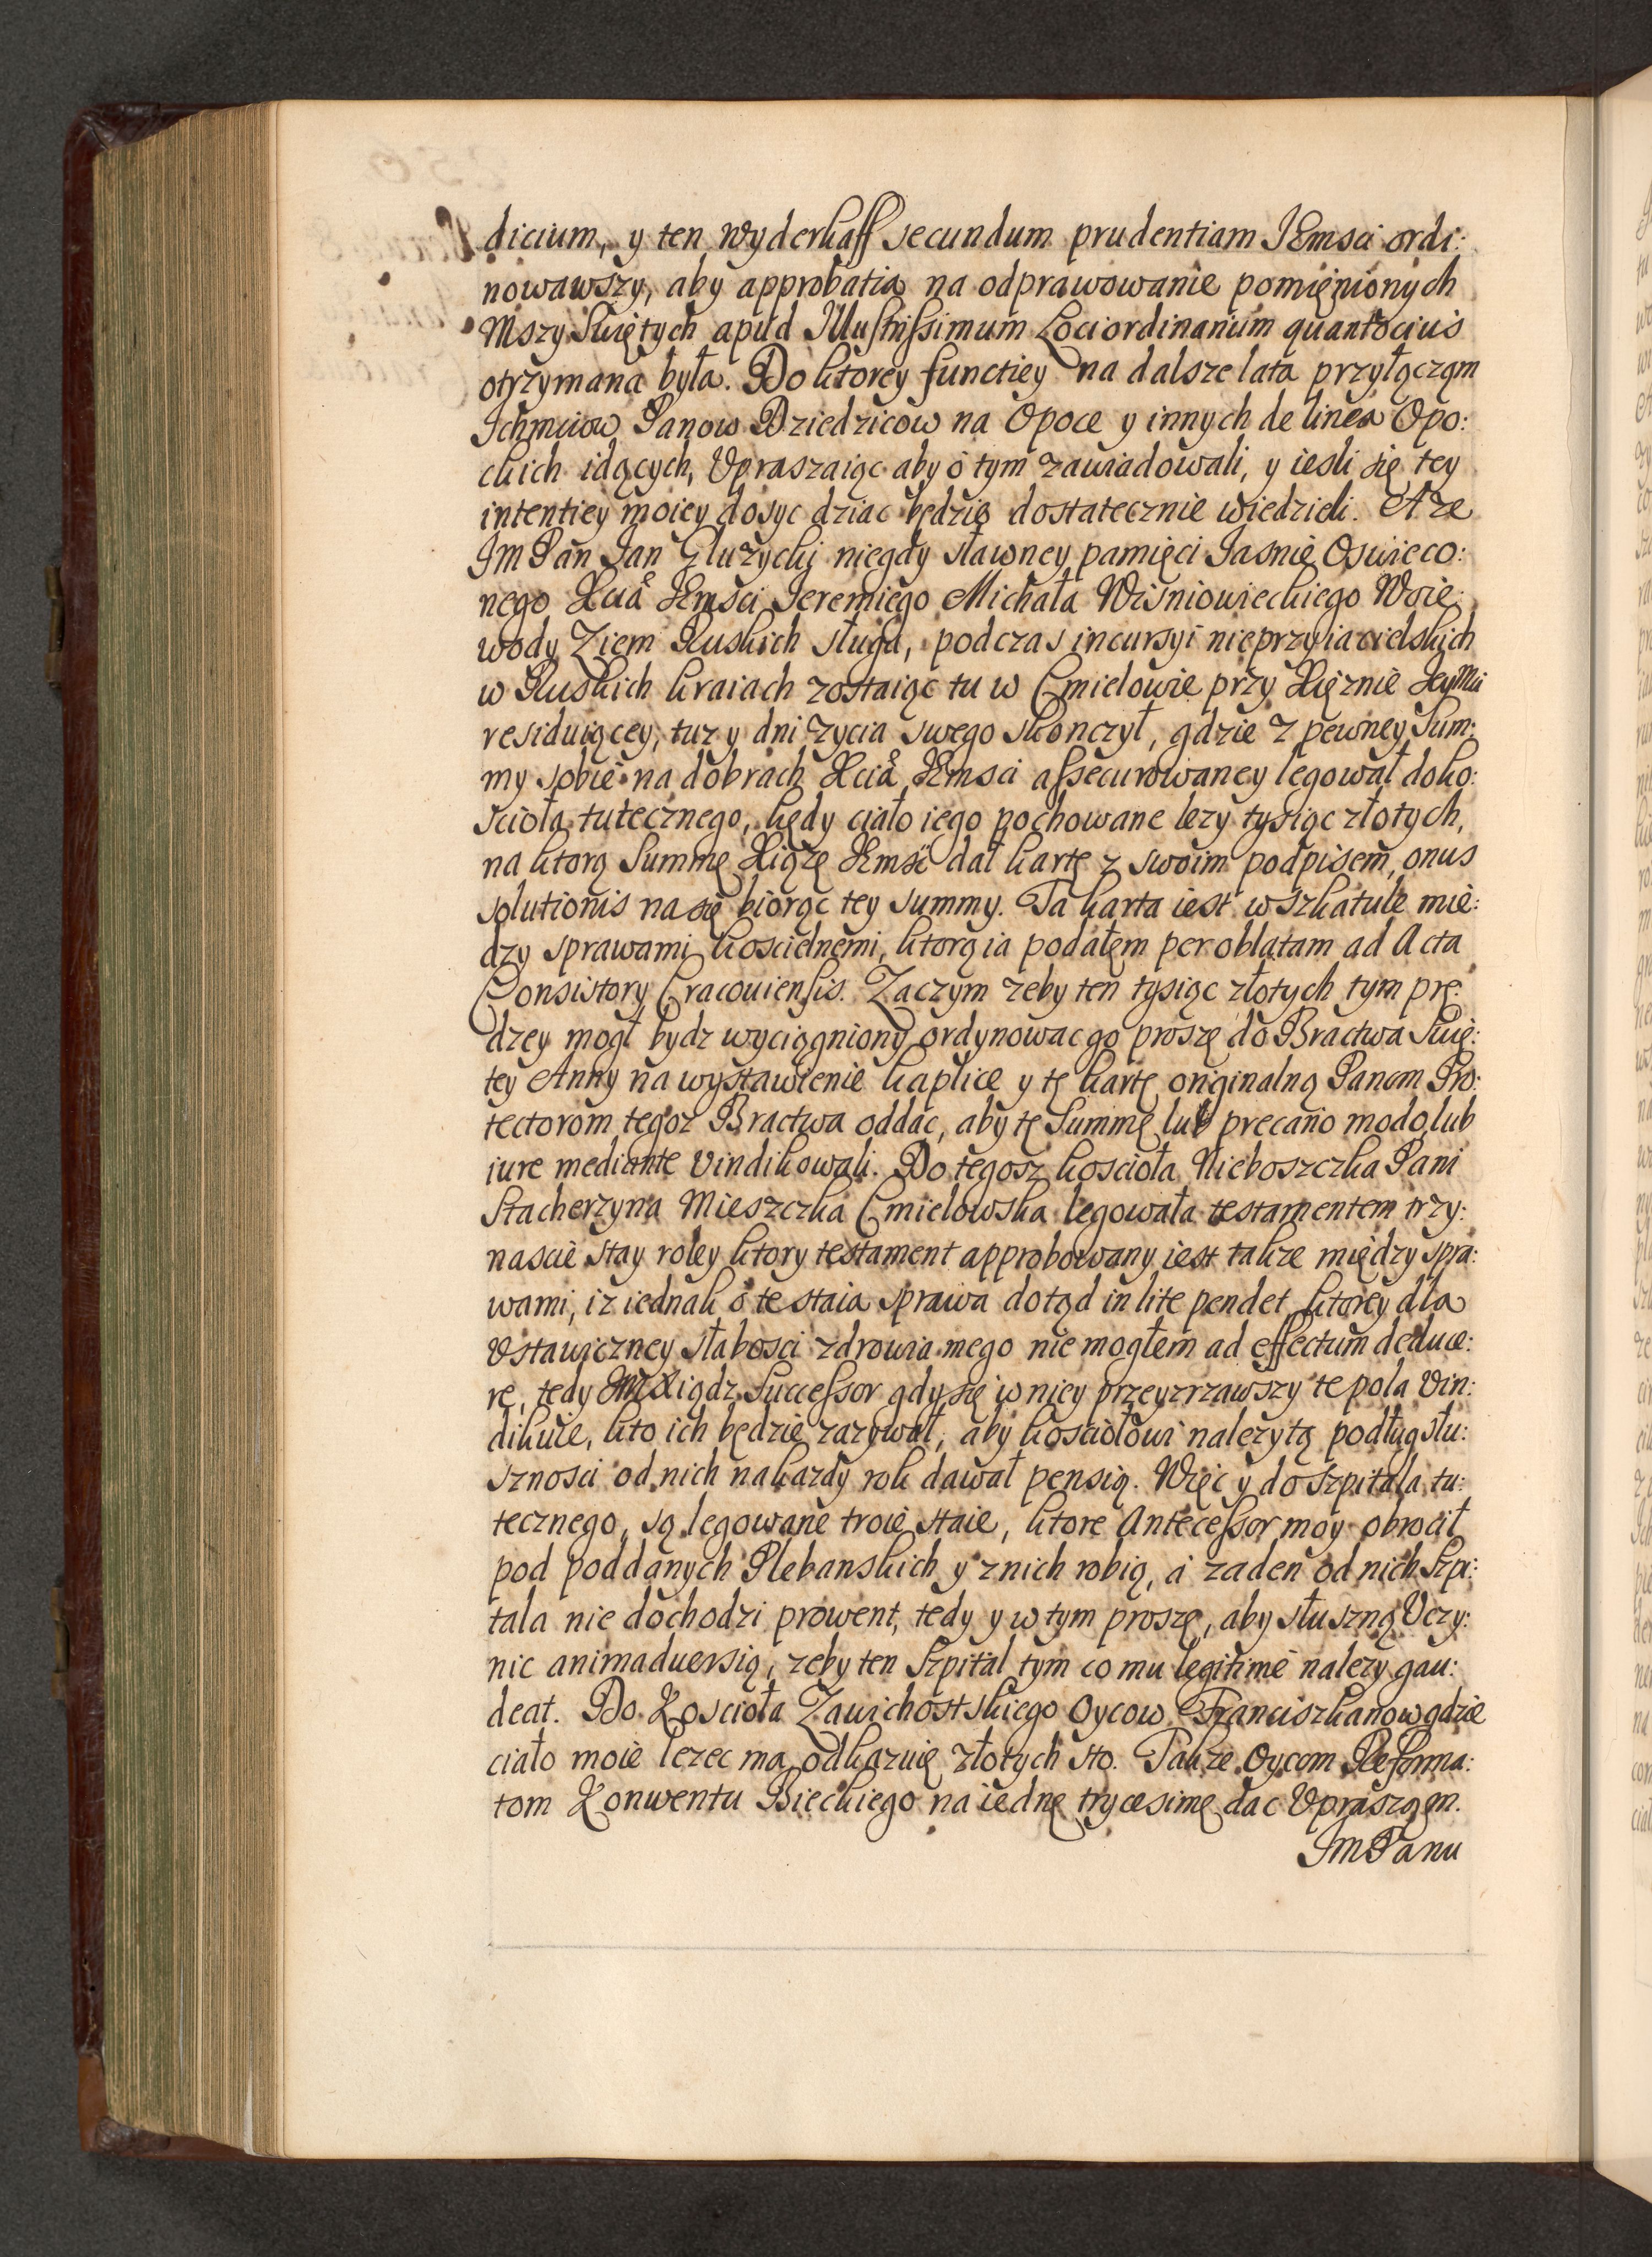 dicium, y ten wyderkaff secundum prudentiam JEmsci ordi:
nowawszy, aby approbatia na odprawowanie pomięnionych
Mszy Swiętych apud Illustrissimum Lociordinarium quantocius
otrzymana była. Do ktorey functiey na dalsze lata przyłączam
Ichmciow Panow Dziedzicow na Opoce y innych de linea Opo:
ckich idących, Vpraszaiąc aby o tym zawiadowali, y iesli się tey
intentiey moiey dosyc dziac będzie dostatecznie wiedzieli. A ze
JM Pan Jan Głuzycki niegdy sławney pamięci Jasnie Oswieco:
nego Xcia JEmsci Jeremiego Michała Wisniowieckiego Woie:
wody Ziem Ruskich sługa, podczas incursyi nieprzyiacielskich
w Ruskich kraiach zostaiąc tu w Cmielowie przy Xięznie JeyMci
residuiącey, tuz y dni zycia swego skonczył, gdzie z pewney Sum:
my sobie na dobrach Xcia JEmsci assecurowaney legował do ko:
scioła tutecznego, kędy ciało iego pochowane lezy tysiąc złotych,
na ktorą Summę Xiąze JEmsc dał kartę z swoim podpisem, onus
solutionis na się biorąc tey summy. Ta karta iest w szkatule mie:
dzy sprawami koscielnemi, ktorą ia podałem per oblatam ad Acta
Consistory Cracouiensis. Zaczym zeby ten tysiąc złotych tym prę:
dzey mogł bydz wyciągniony ordynowac go proszę do Bractwa Swię:
tey Anny na wystawienie kaplice y tę kartę originalną Panom Pro:
tectorom tegoz Bractwa oddac, aby tę Summę lub precario modo, lub
iure mediante vindikowali. Do tegosz koscioła Nieboszczka Pani
Stacherzyna Mieszczka Cmielowska legowała testamentem trzy:
nascie stay roley ktory testament approbowany iest takze między spra:
wami, iz iednak o te staia sprawa dotąd in lite pendet, ktorey dla
Vstawiczney słabosci zdrowia mego nie mogłem ad effectum deduce:
re, tedy JM Xiądz Successor gdy się w niey przeyzrzawszy te pola vin:
dikuie, kto ich będzie zazywał, aby kosciołowi nalezytą podług słu:
sznosci od nich na kazdy rok dawał pensią. Więc y do szpitala tu:
tecznego, są legowane troie staie, ktore Antecessor moy obrocił
pod poddanych Plebanskich y z nich robią, a zaden od nich Szpi:
tala nie dochodzi prowent, tedy y w tym proszę, aby słuszną Vczy:
nic animaduersią, zeby ten Szpital tym co mu legitimè nalezy gau:
deat. Do Koscioła Zawichostskiego Oycow Franciszkanow gdzie
ciało moie lezec ma, odkazuię złotych sto. Takze Oycom Reforma:
tom Konwentu Bieckiego na iednę trycesimę dac Vpraszam.
JM Panu